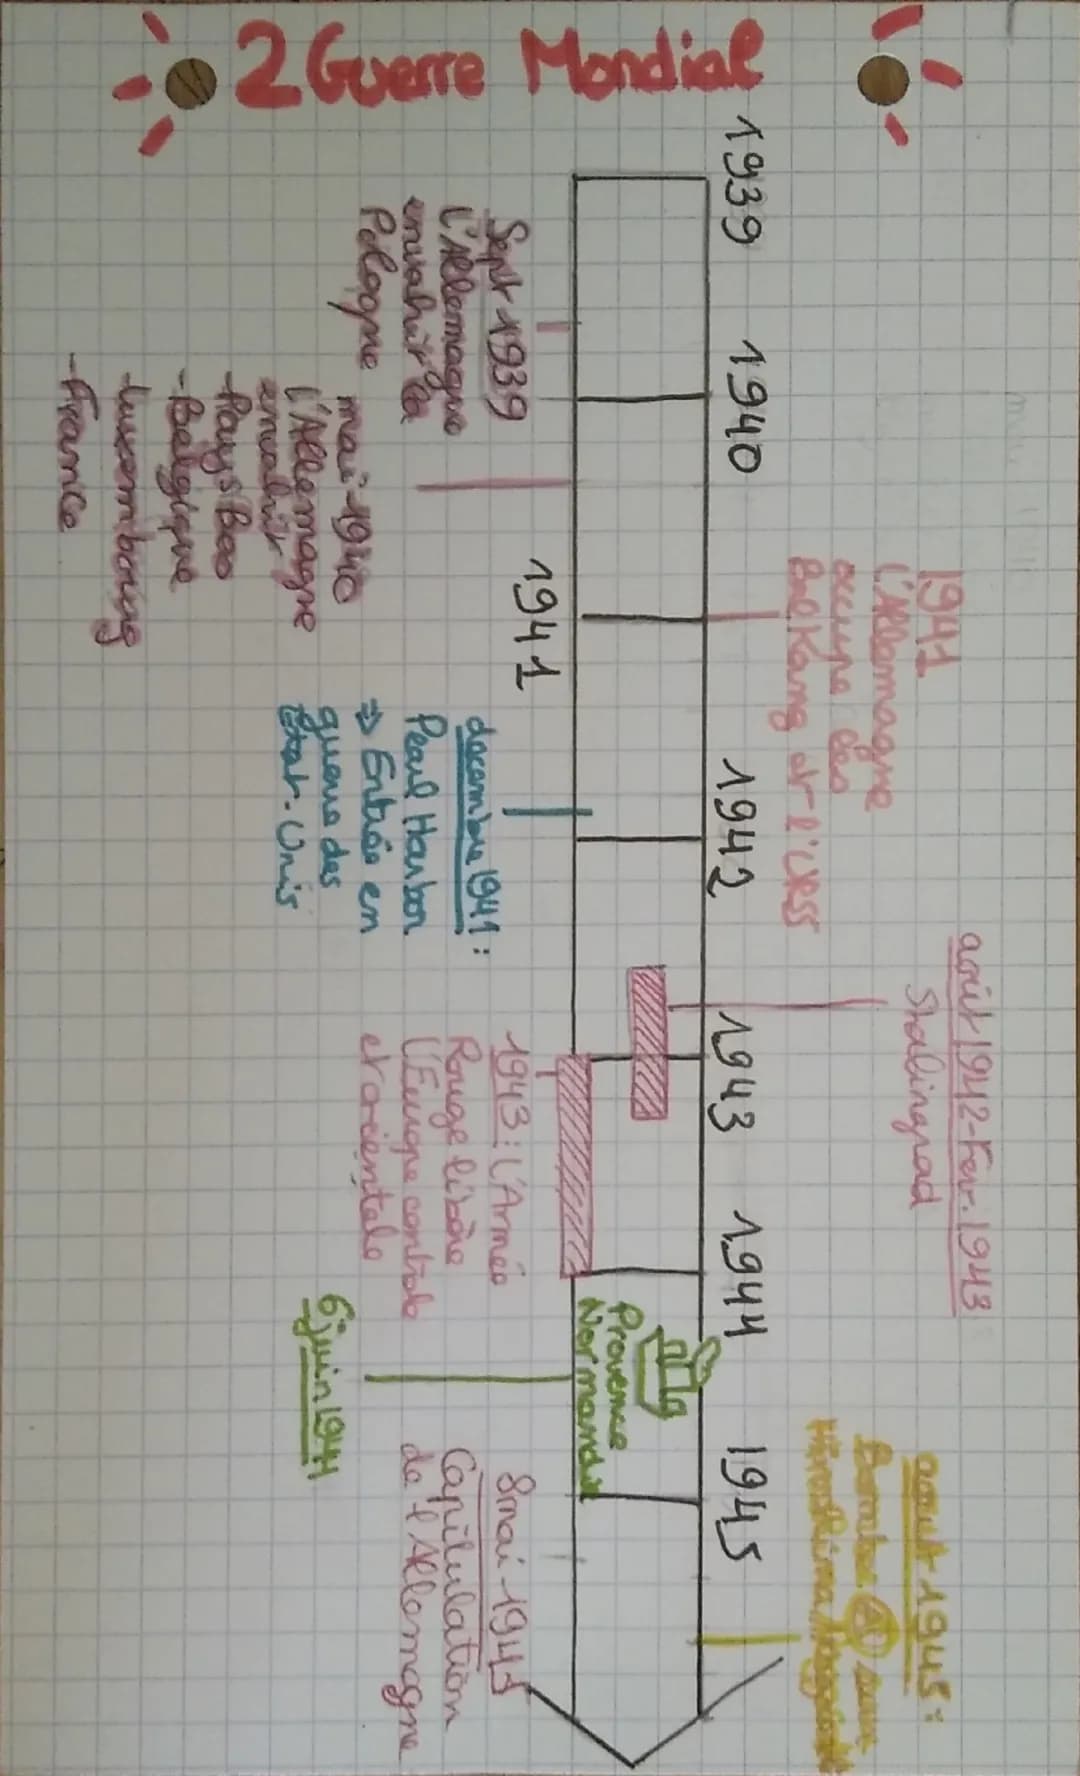 2 Guerre Mondial
1939
1940
1941
1942
1943
1944
1945
Sept 1939
L'Allemagne
envahit la
Pologne
mai 1940
l'Allemagne
envahit
-Pays Bas
-Belgique
-Luxembourg
-France
1941
L'Allemagne
occupe les
Balkang et l'URSS
décembre 1941:
Pearl Harbor
⇒ Entrée en
guerre des
État-Unis
août 1942-Fev.1943
Stalingrad
1943: L'Armée
Rouge libère
L'Europe centrale
et orientale
Provence
Normandie
6 juin 1944
8 mai 1945
Capitulation
de l'Allemagne
aout 1945:
Bombe A sur
Hiroshima/Nagasaki